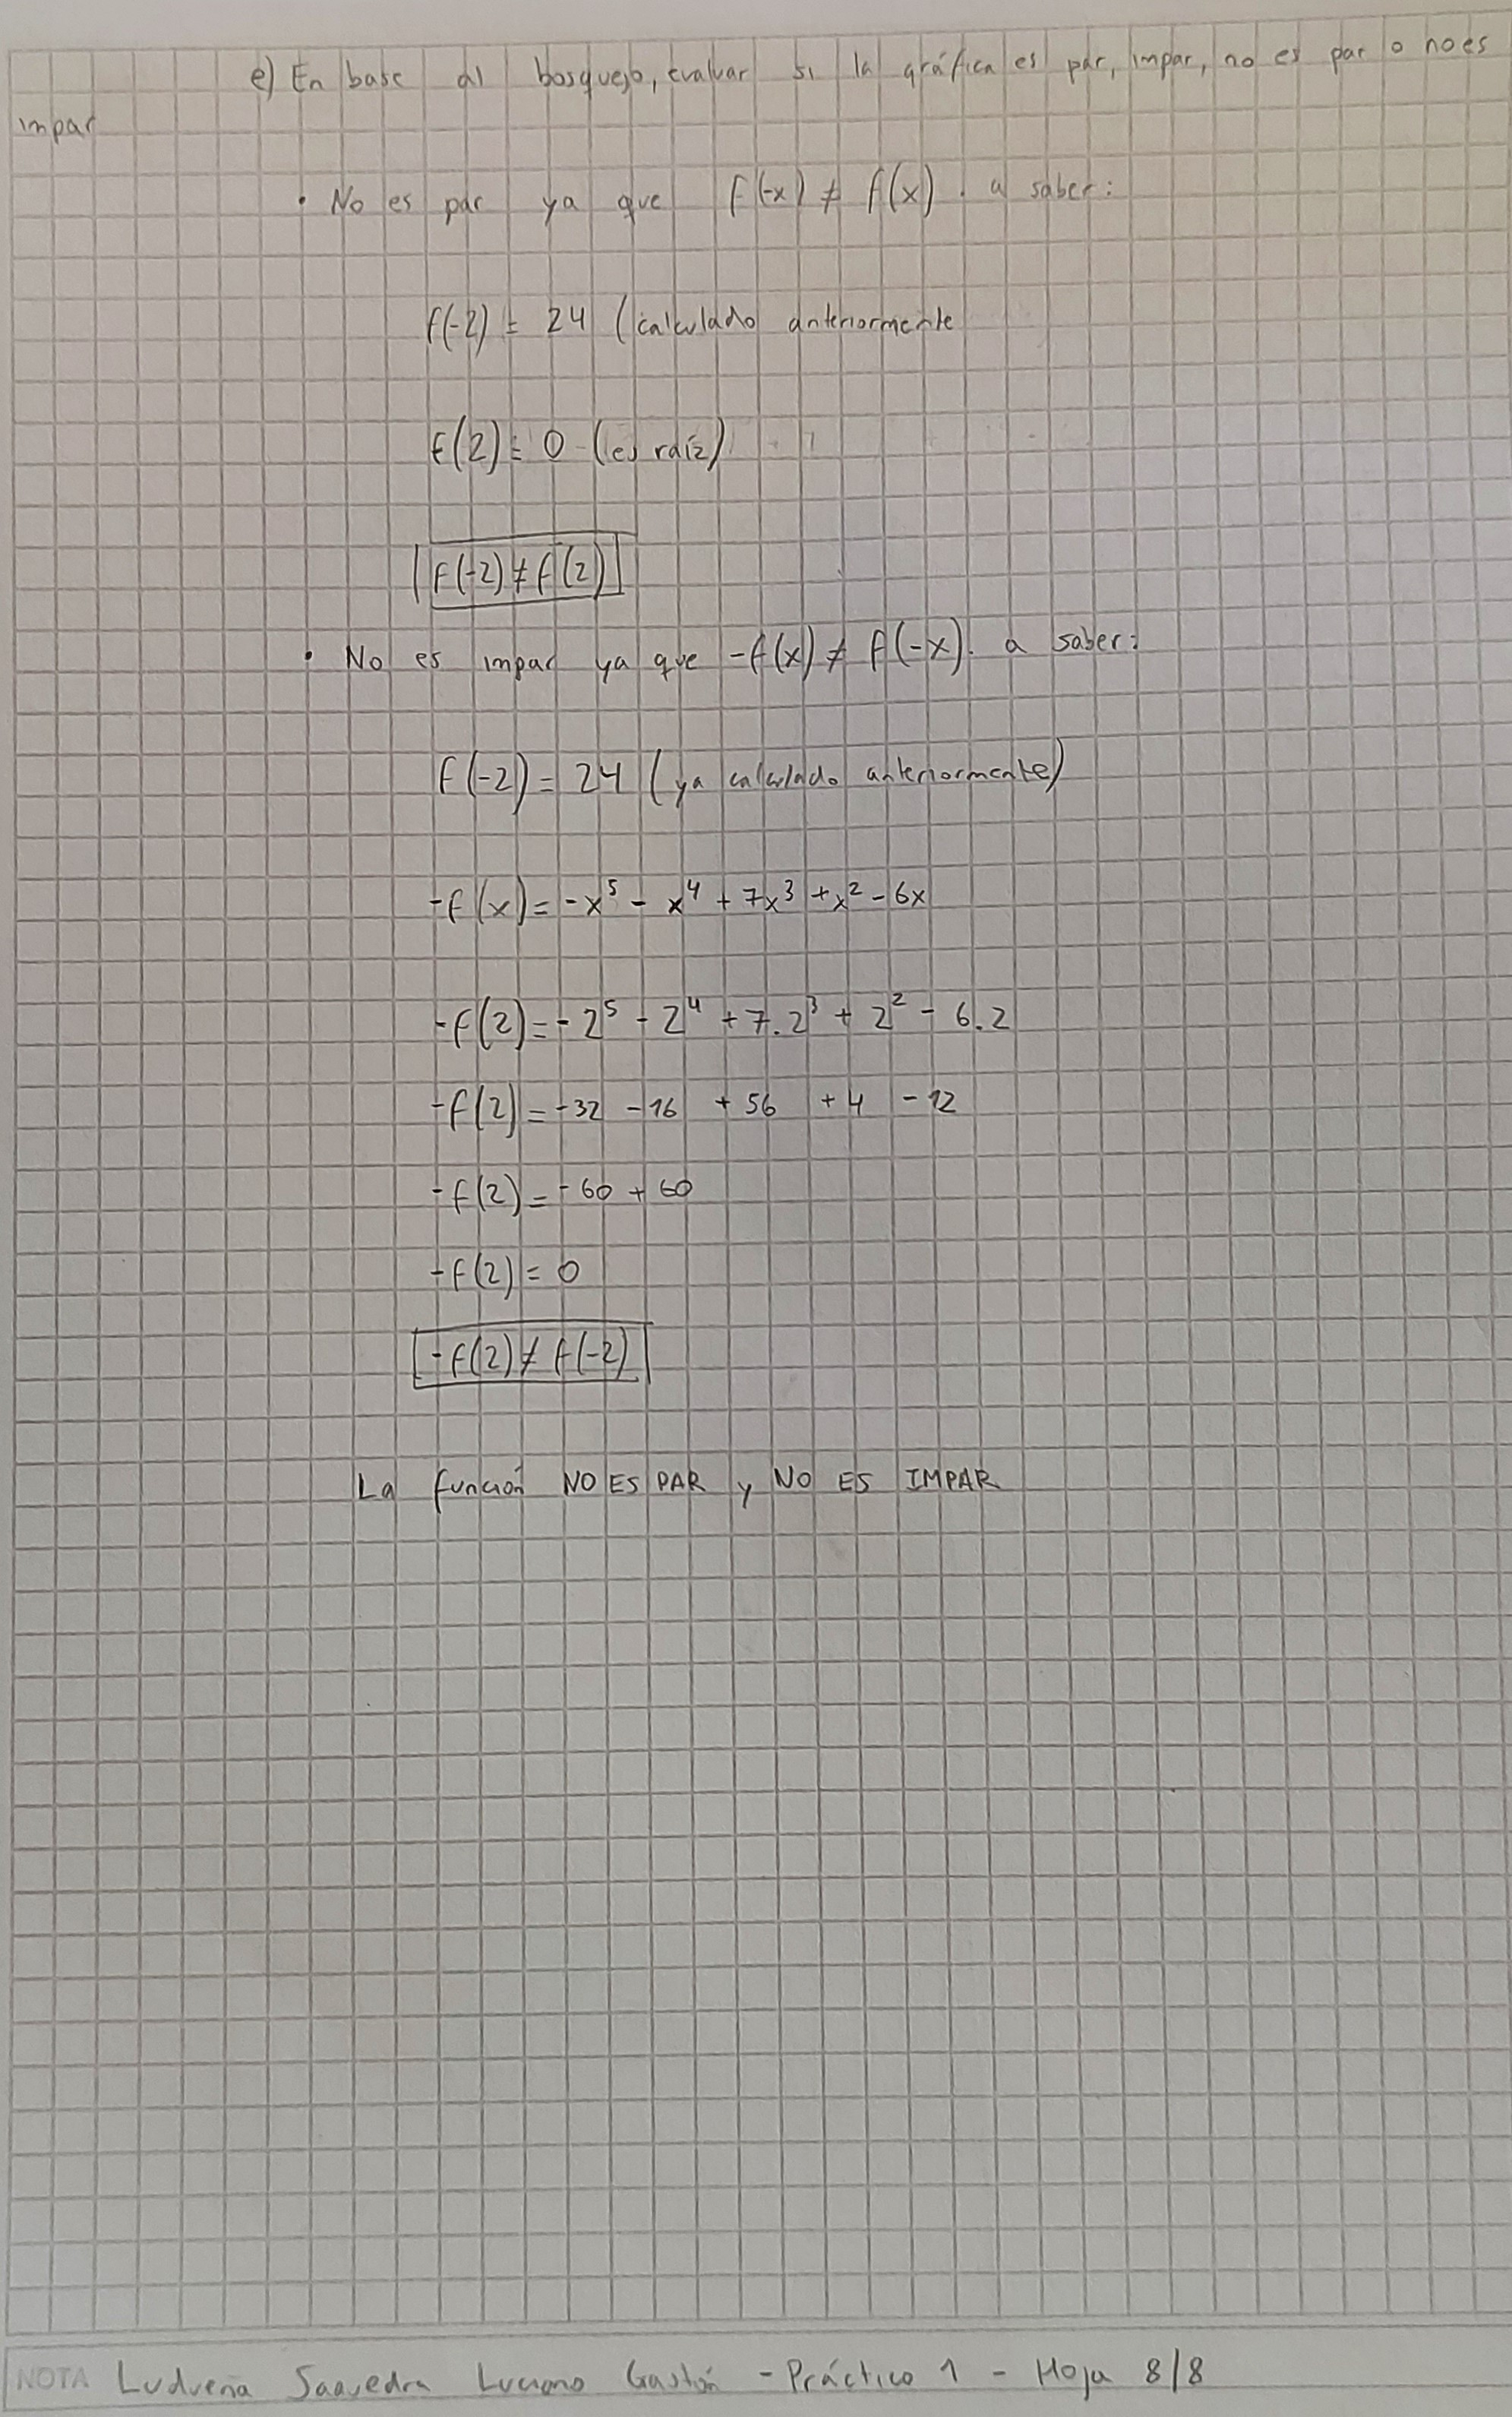 e) En base al bosquejo, evaluar si la gráfica es par, impar, no es par o no es
impar
• No es par ya que f(-x) ≠ f(x). a saber:
f(-2) = 24 (calculado anteriormente
f(2) = 0 (es raíz)
f(-2) ≠ f(2)
• No es impar ya que -f(x) ≠ f(-x). a saber:
f(-2) = 24 (ya calculado anteriormente)
-f(x) = -x⁵ - x⁴ + 7x³ + x² - 6x
-f(2) = -2⁵ - 2⁴ + 7.2³ + 2² - 6.2
-f(2) = -32 -16 + 56 + 4 - 12
-f(2) = -60 + 60
-f(2) = 0
-f(2) ≠ f(-2)
La función NO ES PAR y NO ES IMPAR
NOTA Ludueña Saavedra Luciano Gastón - Práctico 1 - Hoja 8/8